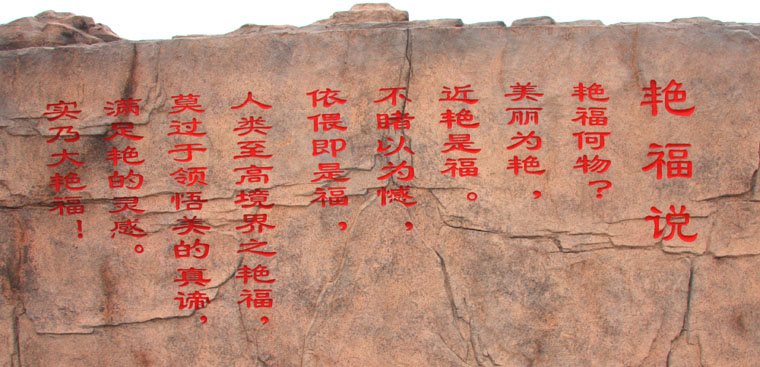 艳福说
艳福何物？
美丽为艳，
近艳是福。
不睹以为憾，
依偎即是福，
人类至高境界之艳福，
莫过于领悟美的真谛，
满足艳的灵感。
实乃大艳福！